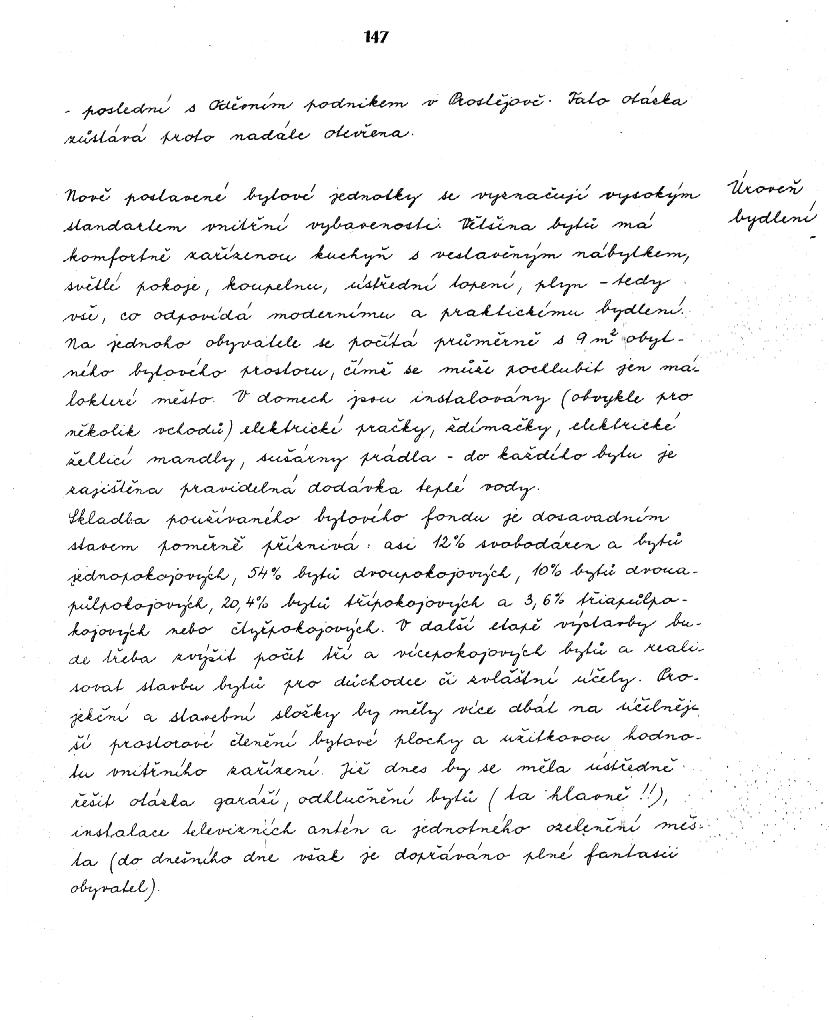 147
- poslední s Oděvním podnikem v Prostějově. Tato otázka
zůstává proto nadále otevřena.
Nově postavené bytové jednotky se vyznačují vysokým
standartem vnitřní vybavenosti. Většina bytů má
komfortně zařízenou kuchyň s vestavěným nábytkem,
světlé pokoje, koupelnu, ústřední topení, plyn - tedy
vše, co odpovídá modernímu a praktickému bydlení.
Na jednoho obyvatele se počítá průměrně s 9 m² obyt-
ného bytového prostoru, čímž se může pochlubit jen má-
lokteré město. V domech jsou instalovány (obvykle pro
několik vchodů) elektrické pračky, ždímačky, elektrické
žehlící mandly, sušárny prádla - do každého bytu je
zajištěna pravidelná dodávka teplé vody.
Skladba používaného bytového fondu je dosavadním
stavem poměrně příznivá: asi 12% svobodáren a bytů
jednopokojových, 54% bytů dvoupokojových, 10% bytů dvoua-
půlpokojových, 20,4% bytů třípokojových a 3,6% třiapůlpo-
kojových nebo čtyřpokojových. V další etapě výstavby bu-
de třeba zvýšit počet tří a vícepokojových bytů a reali-
sovat stavbu bytů pro důchodce či zvláštní účely. Pro-
jekční a stavební složky by měly více dbát na účelněj-
ší prostorové členění bytové plochy a užitkovou hodno-
tu vnitřního zařízení. Již dnes by se měla ústředně
řešit otázka garáží, odhlučnění bytů (ta hlavně!!),
instalace televizních antén a jednotného ozelenění měs-
ta (do dnešního dne však je dopřáváno plné fantasii
obyvatel).
Úroveň
bydlení